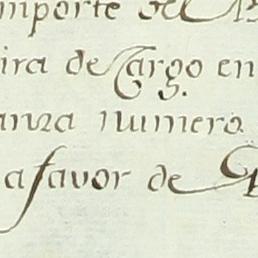 mporte del
ira de Cargo en
anza numero
a favor de